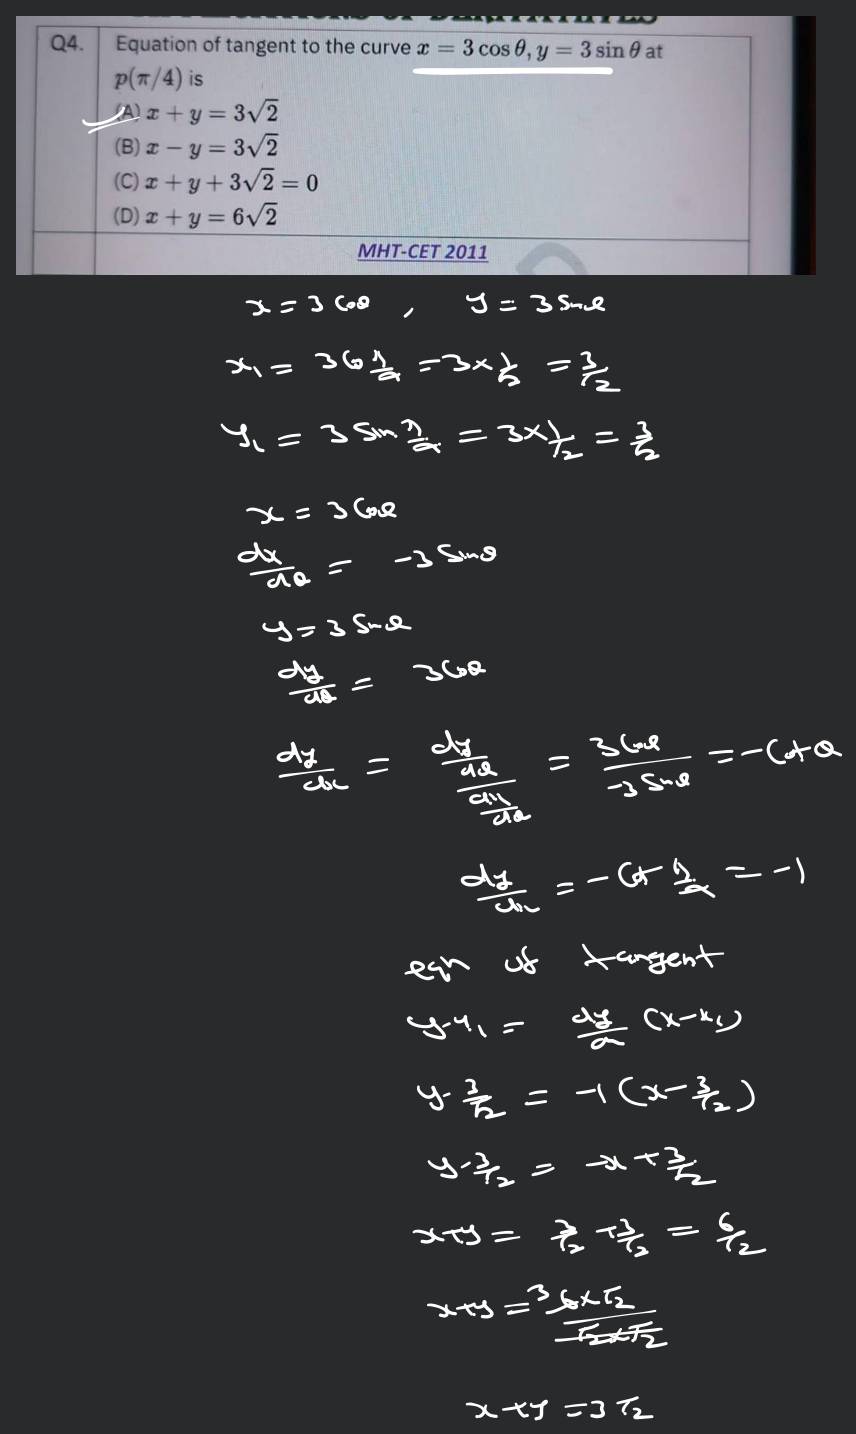 Q4. Equation of tangent to the curve x = 3 cos θ, y = 3 sin θ at
p(π/4) is
(A) x + y = 3√2
(B) x − y = 3√2
(C) x + y + 3√2 = 0
(D) x + y = 6√2
MHT-CET 2011
x = 3 cosθ , y = 3 sinθ
x₁ = 3 cos π/4 = 3 × 1/√2 = 3/√2
y₁ = 3 sin π/4 = 3 × 1/√2 = 3/√2
x = 3 cosθ
dx/dθ = -3 sinθ
y = 3 sinθ
dy/dθ = 3 cosθ
dy/dx = (dy/dθ)/(dx/dθ) = 3 cosθ/-3 sinθ = - cot θ
dy/dx = - cot π/4 = -1
eqn of tangent
y-y₁ = dy/dx (x-x₁)
y-3/√2 = -1 (x-3/√2)
y-3/√2 = -x + 3/√2
x+y = 3/√2 + 3/√2 = 6/√2
x+y = 3 6×√2/√2×√2
x+y = 3√2